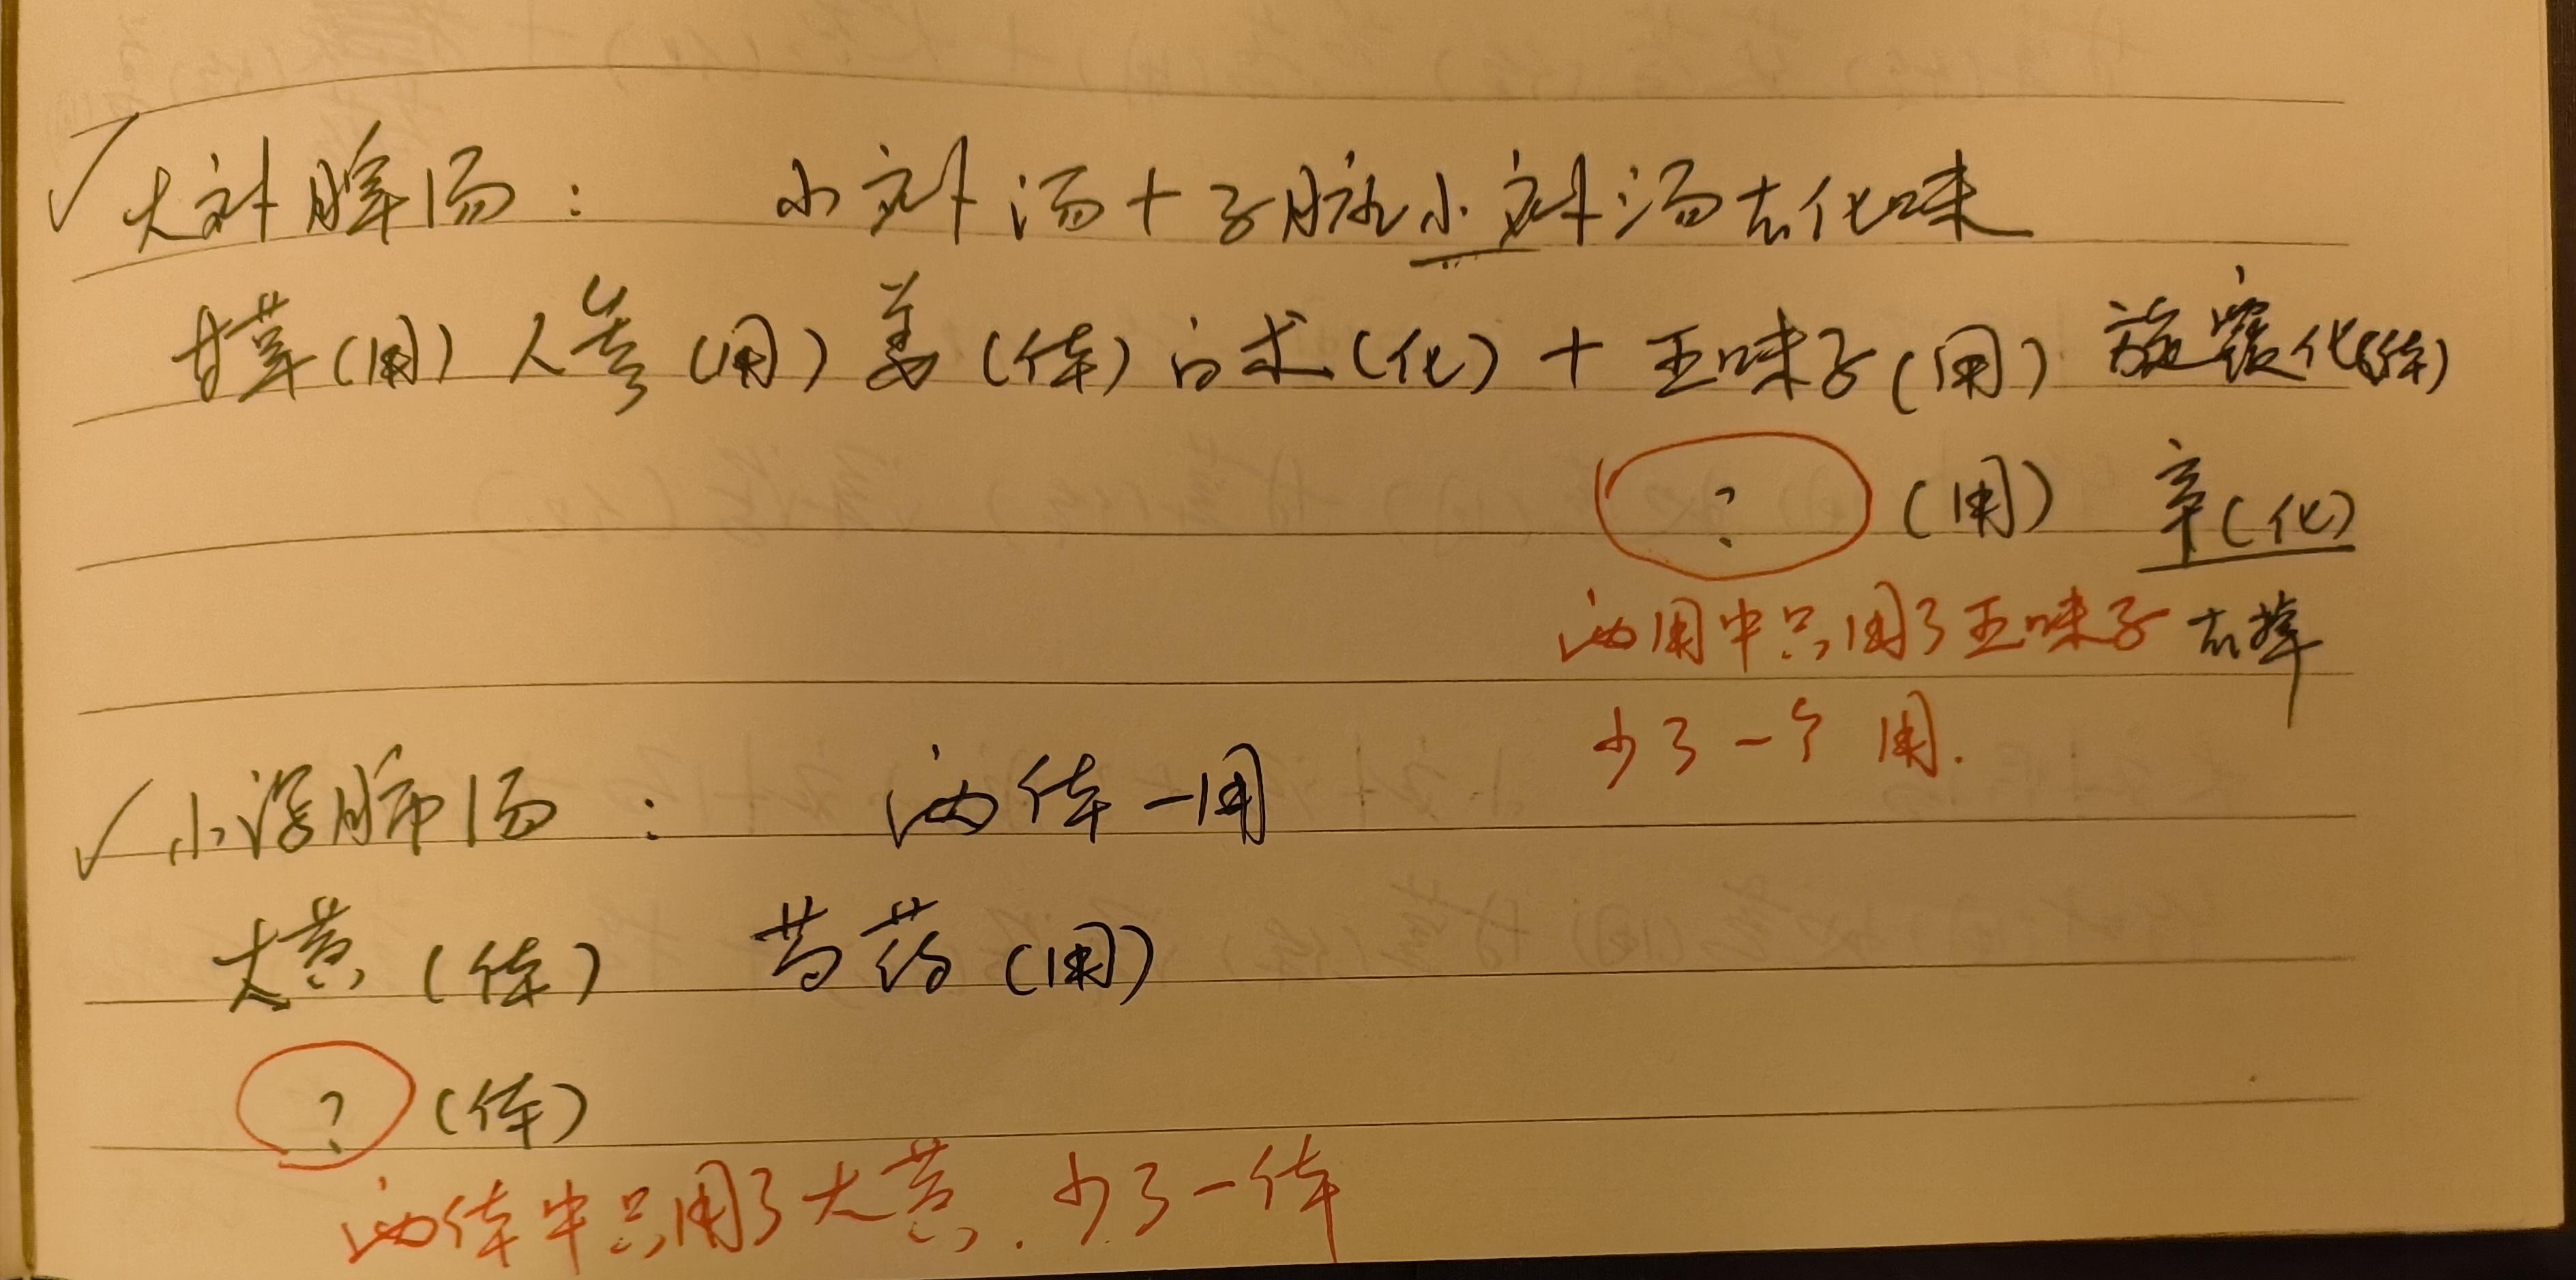 ✓大补脾汤： 小补汤+子脏小补汤去化味
甘草(用) 人参(用) 姜(体) 白术(化) + 五味子(用) 旋覆化(体)
? (用) 辛(化)
两用中只用了五味子 去掉
少了一个 用.
✓小泻肺汤： 两体一用
大黄(体) 芍药(用)
? (体)
两体中只用了大黄. 少了一体